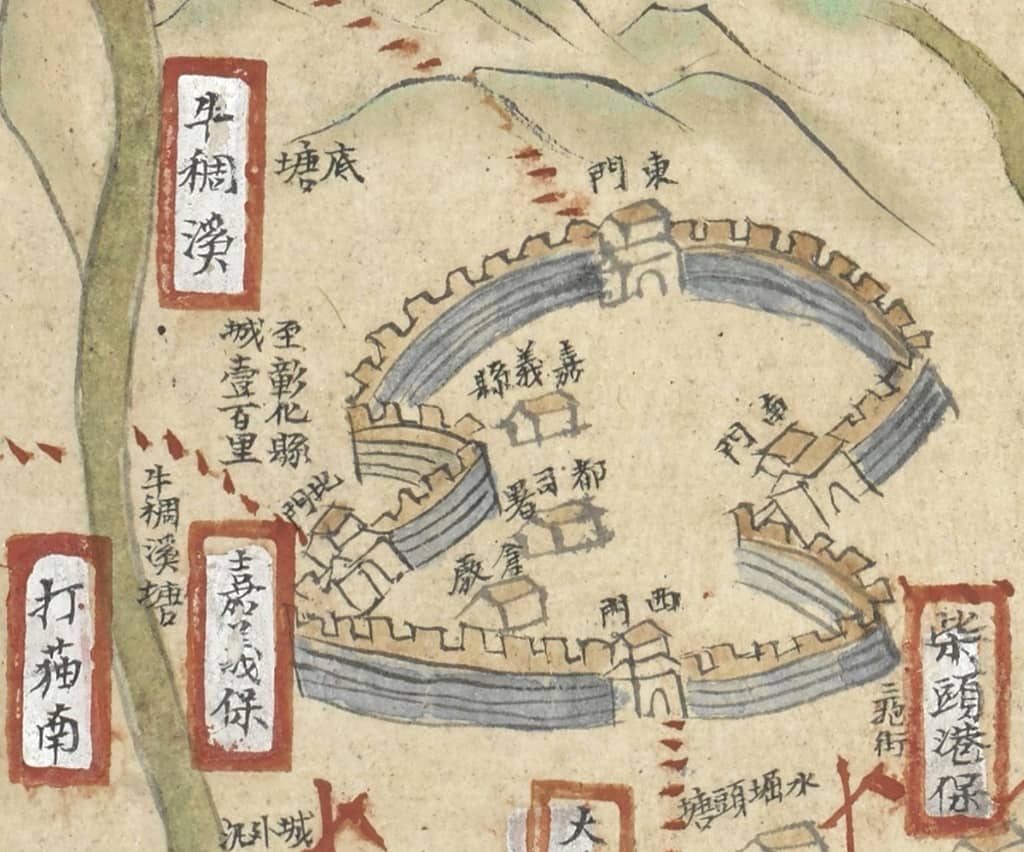 牛稠溪
底塘
東門
至彰化縣
城壹百里
嘉義縣
南門
北門
牛稠溪塘
都司署
倉廒
西門
打猫南
保
柴頭港保
街
水堀頭塘
城外
大